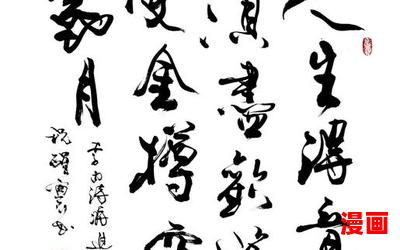 人生得意
須盡歡莫
使金樽空
對月
李白诗将進
漫画